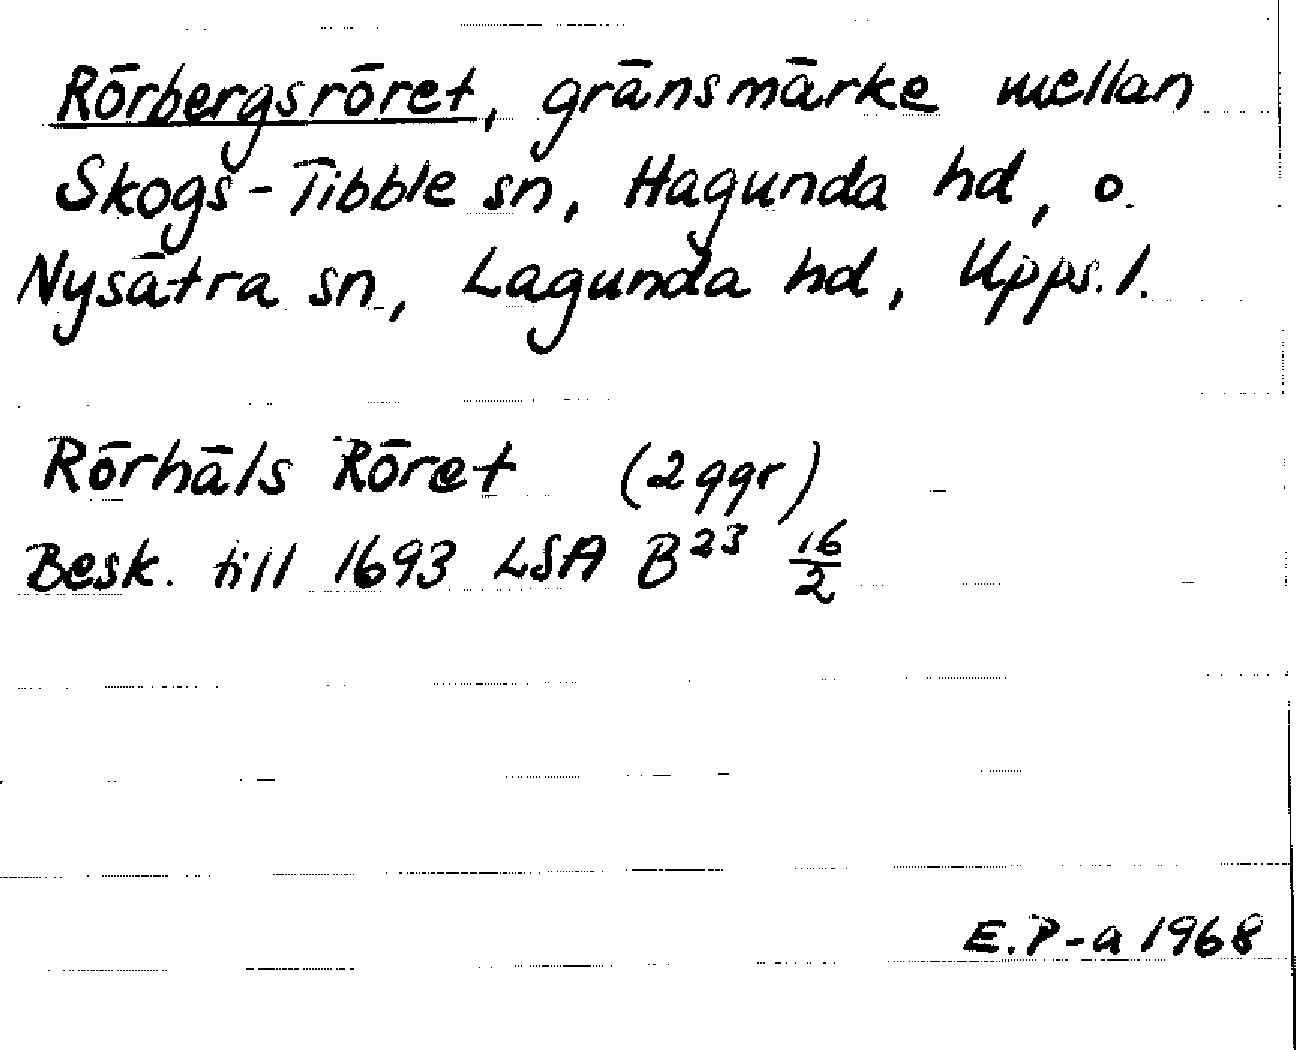 Rörbergsröret, gränsmärke mellan
Skogs-Tibble sn, Hagunda hd, o.
Nysätra sn, Lagunda hd, Upps. l.
Rörhäls Röret (2 ggr)
Besk. till 1693 LSA B²³ 16/2
E.P-a 1968